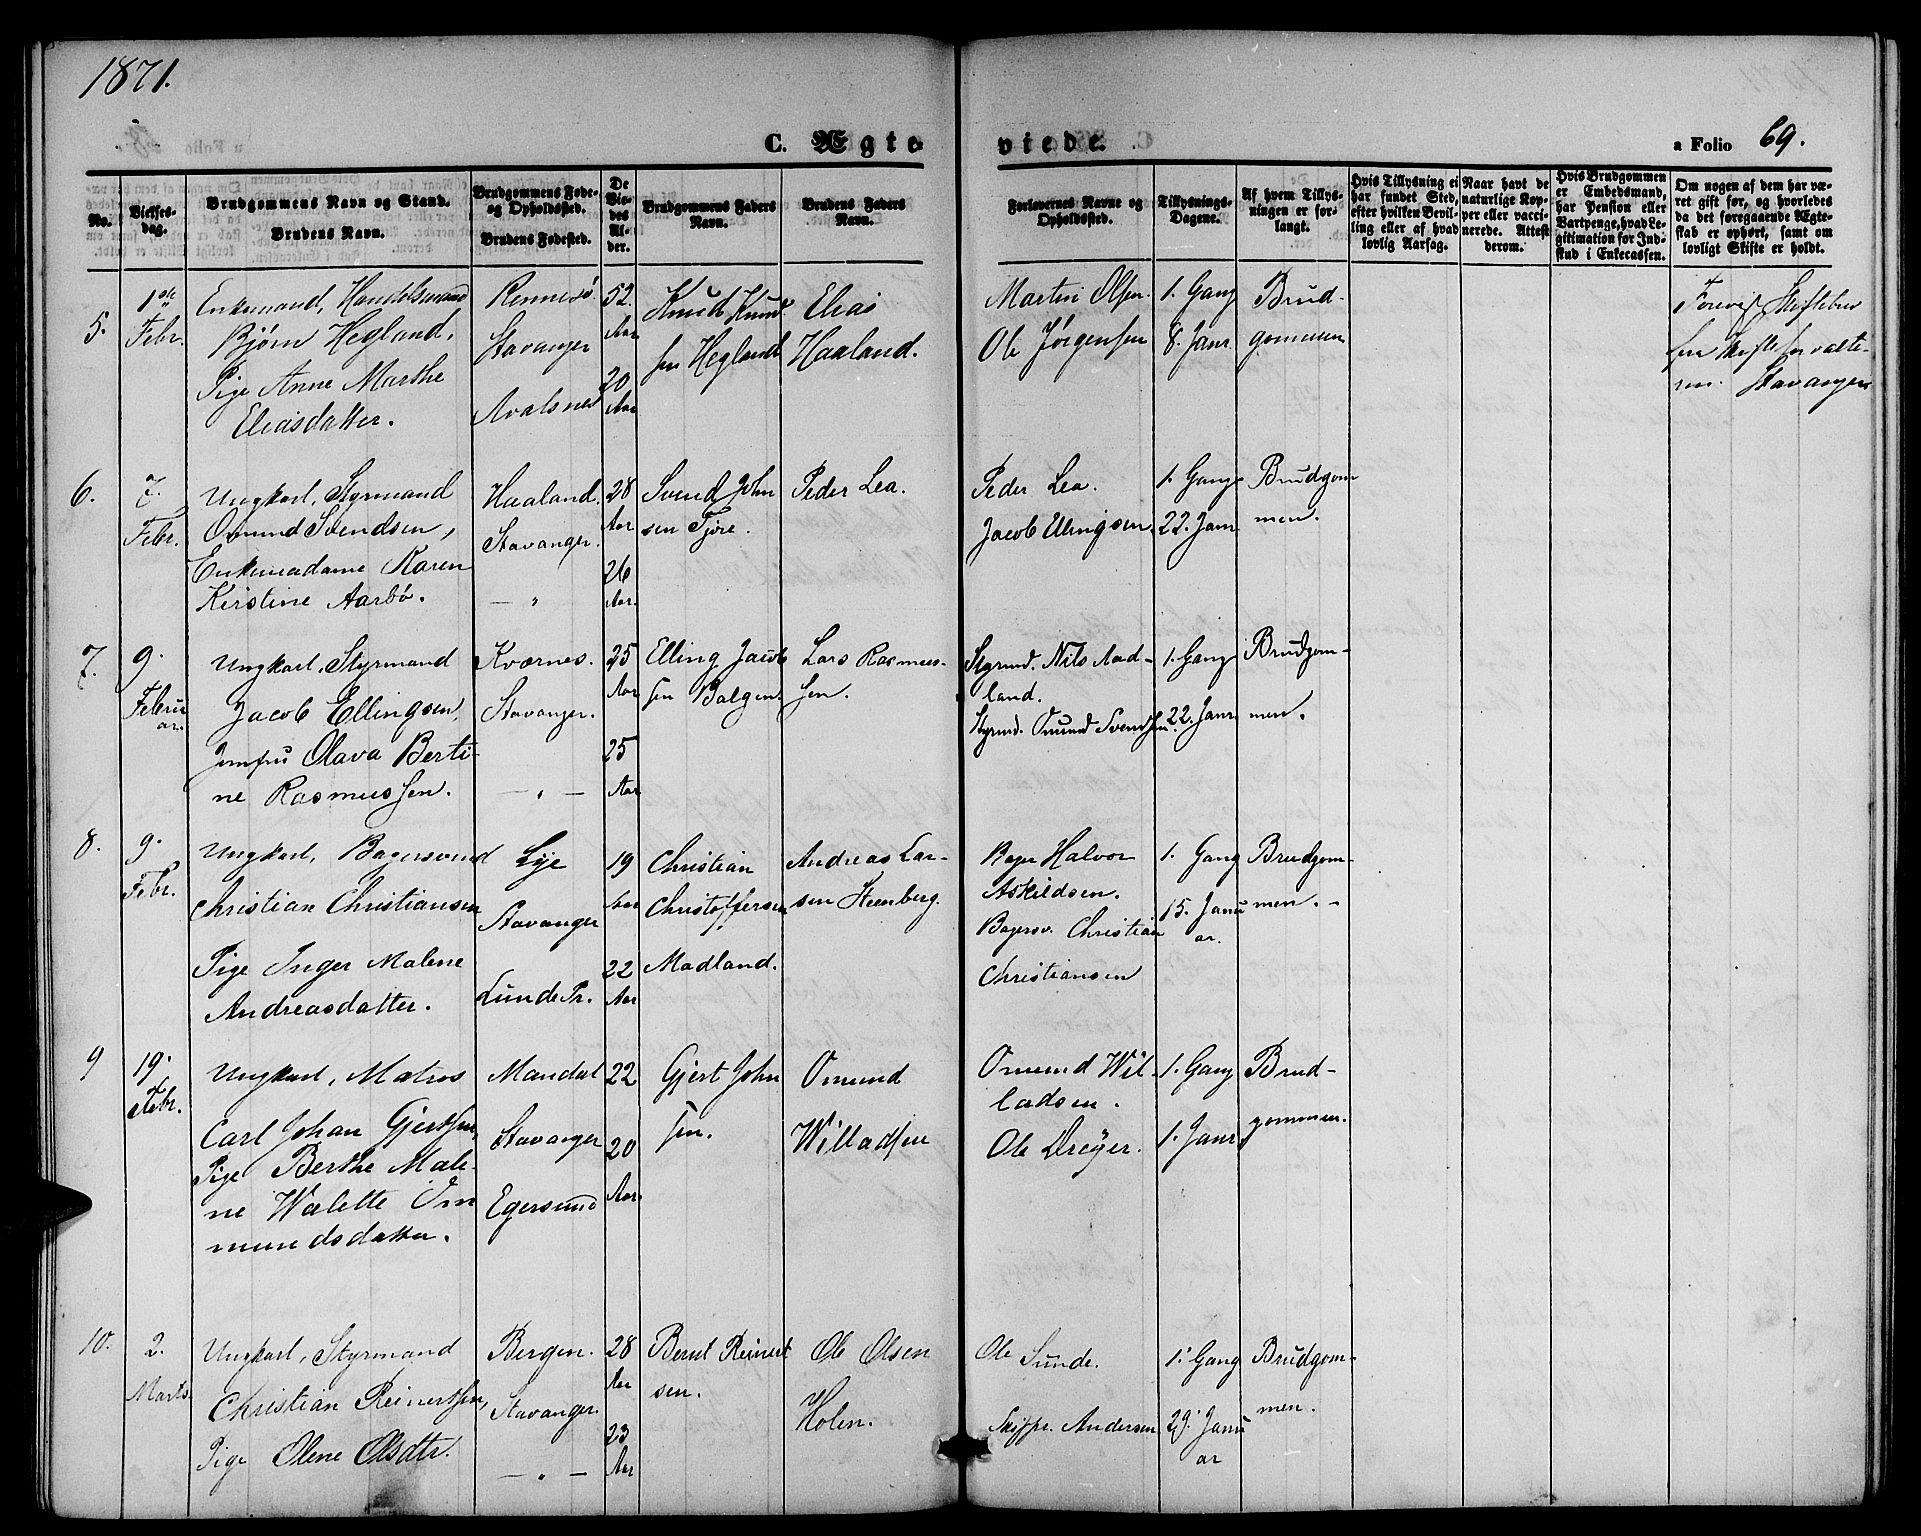 1871.
C. Ægte
viede.
a Folio 69.
No.
Vielses-
dag.
Brudgommens Navn og Stand.
Brudens Navn.
Brudgommens Føde-
og Opholdssted.
Brudens Fødested.
De
Vie-
des Al-
der.
Brudgommens Faders
Navn.
Brudens Faders
Navn.
Forlovernes Navne og
Opholdssted.
Tillysnings-
Dagene.
Af hvem Tillys-
ningen er for-
langt.
Hvis Tillysning ei
har fundet Sted,
efter hvilken Bevil-
ling eller af hvad
lovlig Aarsag.
Naar havt de
naturlige Kop-
per eller vacci-
nerede. Attest
derom.
Hvis Brudgommen
er Embedsmand,
har Pension eller
Vartpenge, hvad Le-
gitimation for Ind-
skud i Enkecassen.
Om nogen af dem har væ-
ret gift før, og hvorledes
da det foregaaende Ægte-
skab er ophørt, samt om
lovligt Skifte er holdt.
5.
1ste
Febr.
Enkemand, Handelsmand
Bjørn Hegland,
Pige Anne Marthe
Eliasdatter.
Rennesø
Stavanger
Avalsnes
52
Aar
20
Aar
Knud Knud-
sen Hegland
Elias
Haaland.
Martin Olsen.
Ole Jørgensen
1. Gang
8. Janr
Brud-
gommen
Forevist Skiftebrev
fra Skifteforvalte-
ren. Stavanger
6.
7.
Febr.
Ungkarl, Styrmand
Omund Svendsen,
Enkemadame Karen
Kirstine Aarbø.
Haaland.
Stavanger.
— „
28
Aar
26
Aar.
Svend John
sen Tjøre.
Peder Lea.
Peder Lea.
Jacob Ellingsen
1. Gang
22. Janr
Brudgom
men.
7.
9.
Febru
ar.
Ungkarl, Styrmand
Jacob Ellingsen,
Jomfru Olava Berti-
ne Rasmussen.
Kværnes.
Stavanger.
— „ —
25
Aar
25
Aar
Elling Jacob
sen Bolgen.
Lars Rasmus-
sen.
Styrmd. Nils Aad-
land.
Styrmd. Omund Svendsen.
1. Gang
22. Janr
Brudgom-
men.
8.
9.
Febr.
Ungkarl, Bagersvend
Christian Christiansen
Pige Inger Malene
Andreasdatter.
Lye
Stavanger
Lunde Pr.
19
Aar
22
Aar
Christian
Christoffersen
Madland.
Andreas Lar-
sen Steenberg.
Bager Halvor
Askildsen.
Bagersv. Christian
Christiansen
1. Gang
15. Janu
ar.
Brudgom-
men. -
9
19.
Febr.
Ungkarl, Matros
Carl Johan Gjertsen,
Pige Berthe Male-
ne Walette Om
mundsdatter.
Mandal
Stavanger
Egersund
22
20
Aar
Gjert John
sen.
Omund
Willadsen
Omund Wil-
ladsen.
Ole Dreyer.
1. Gang
1. Janr
Brud-
gommen.
10.
2.
Marts
Ungkarl, Styrmand
Christian Reinertsen,
Pige Olene Olsdtr.
Bergen.
Stavanger.
— „ —
28
Aar
23
Aar
Bernt Reinert
sen.
Ole Olsen
Holen.
Ole Sunde.
Skippr. Andersen
1. Gang
29. Janu
ar
Brudgom-
men.